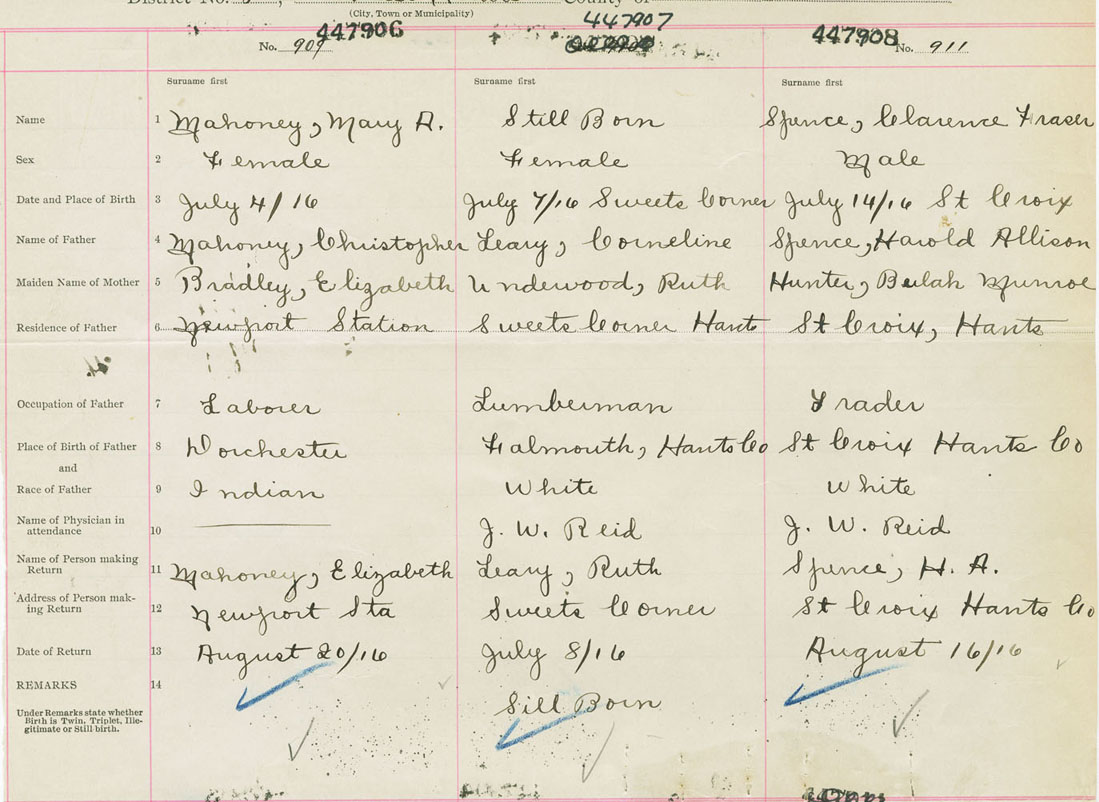 District No. County of
(City, Town or Municipality)
447906 447907 447908
No. 909 No. 911
Surname first Surname first Surname first
Name 1 Mahoney, Mary A. Still Born Spence, Clarence Fraser
Sex 2 Female Female Male
Date and Place of Birth 3 July 4/16 July 7/16 Sweets Corner July 14/16 St Croix
Name of Father 4 Mahoney, Christopher Leary, Corneline Spence, Harold Allison
Maiden Name of Mother 5 Bradley, Elizabeth Undewood, Ruth Hunter, Beulah Munroe
Residence of Father 6 Newport Station Sweets Corner Hants St Croix, Hants
Occupation of Father 7 Laborer Lumberman Trader
Place of Birth of Father 8 Dorchester Falmouth, Hants Co St Croix Hants Co
and
Race of Father 9 Indian White White
Name of Physician in
attendance 10 J. W. Reid J. W. Reid
Name of Person making
Return 11 Mahoney, Elizabeth Leary, Ruth Spence, H. A.
Address of Person mak-
ing Return 12 Newport Sta Sweets Corner St Croix Hants Co
Date of Return 13 August 20/16 July 8/16 August 16/16
REMARKS 14 Sill Born
Under Remarks state whether
Birth is Twin, Triplet, Ille-
gitimate or Still-birth.